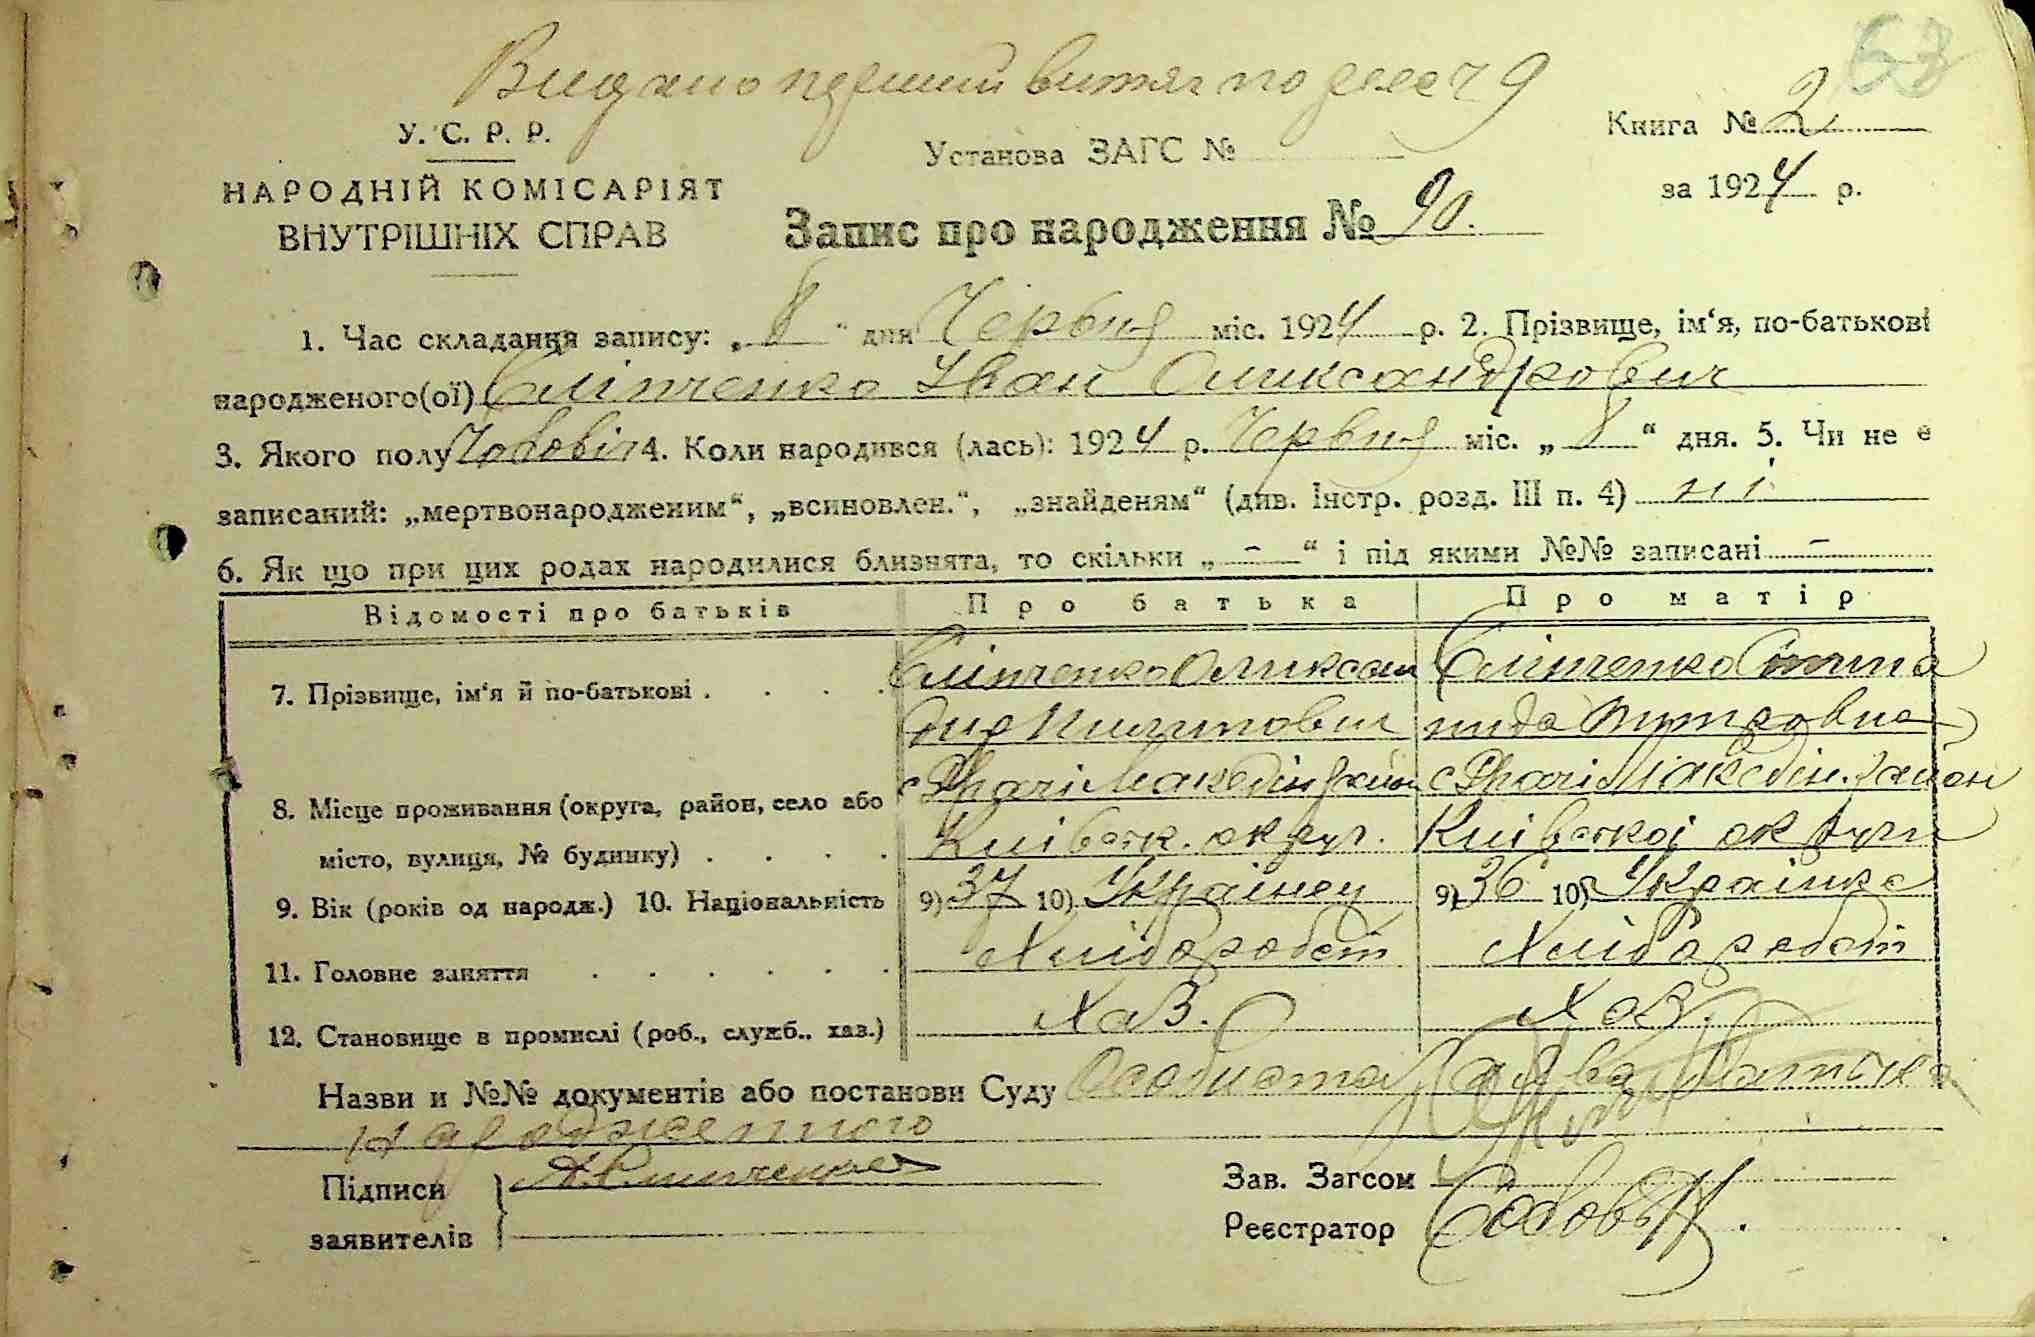 63
Видано перший витяг по
У. С. Р. Р.
НАРОДНІЙ КОМІСАРІЯТ
ВНУТРІШНІХ СПРАВ
Установа ЗАГС №
Книга № 2
за 1924 р.
Запис про народження № 90.
1. Час складання запису: „ 8 “ дня Червня міс. 1924 р. 2. Прізвище, ім‘я, по-батькові
народженого(ої) Сліпченко Іван Олександрович
3. Якого полу Чоловіч 4. Коли народився (лась): 1924 р. Червня міс. „ 8 “ дня. 5. Чи не є
записаний: „мертвонародженим“, „всиновлен.“, „знайденям“ (див. Інстр. розд. III п. 4) ні
6. Як що при цих родах народилися близнята, то скільки „ - “ і під якими №№ записані -
Відомості про батьків Про батька Про матір
7. Прізвище, ім‘я й по-батькові . . . . Сліпченко Олексан Сліпченко
дир Пилипович
8. Місце проживання (округа, район, село або Македін. район
місто, вулиця, № будинку) . . . . Київськ. округ. Київської округи
9. Вік (років од народж.) 10. Національність 9) 37 10) Українец 9) 36 10) Українка
11. Головне заняття . . . . . . Хлібороб Хлібороб
12. Становище в промислі (роб., служб., хаз.) Хаз. Хаз.
Назви и №№ документів або постанови Суду Особиста заява батька
народженого
Підписи
заявителів А. Слипченко
Зав. Загсом
Реєстратор